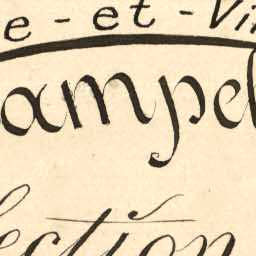 e-et-Vi
ampel
ection